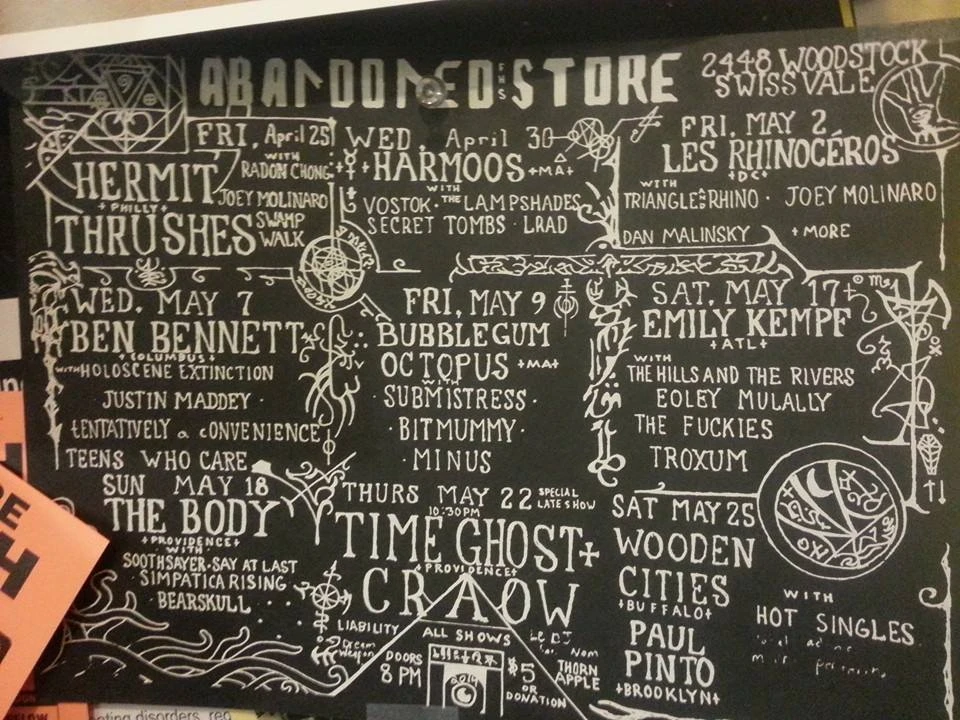 ABANDONED STORE
2448 WOODSTOCK
SWISSVALE
FRI, April 25
WITH
HERMIT
+PHILLY+
THRUSHES
RADON CHONG
JOEY MOLINARO
SWAMP
WALK
WED. April 30
HARMOOS +MA+
WITH
VOSTOK · THE LAMPSHADES
SECRET TOMBS · LRAD
FRI, MAY 2
LES RHINOCÉROS
+DC+
WITH
TRIANGLE RHINO · JOEY MOLINARO
DAN MALINSKY +MORE
WED. MAY 7
BEN BENNETT
+COLUMBUS+
WITH HOLOSCENE EXTINCTION
JUSTIN MADDEY ·
tENTATIVELY a cONVENIENCE
TEENS WHO CARE
FRI, MAY 9
BUBBLEGUM
OCTOPUS +MA+
WITH
· SUBMISTRESS ·
· BITMUMMY ·
· MINUS
SAT. MAY 17
EMILY KEMPF
+ATL+
WITH
THE HILLS AND THE RIVERS
EOLEY MULALLY
THE FUCKIES
TROXUM
SUN MAY 18
THE BODY
+PROVIDENCE+
WITH
SOOTHSAYER · SAY AT LAST
SIMPATICA RISING
BEARSKULL
THURS MAY 22 SPECIAL
LATE SHOW
10:30PM
TIME GHOST+
+PROVIDENCE+
CRAOW
LIABILITY
Dream
Weapon
THORN
APPLE
SAT MAY 25
WOODEN
CITIES
+BUFFALO+
PAUL
PINTO
+BROOKLYN+
WITH
HOT SINGLES
ALL SHOWS
DOORS
8 PM
2014
$5
OR
DONATION